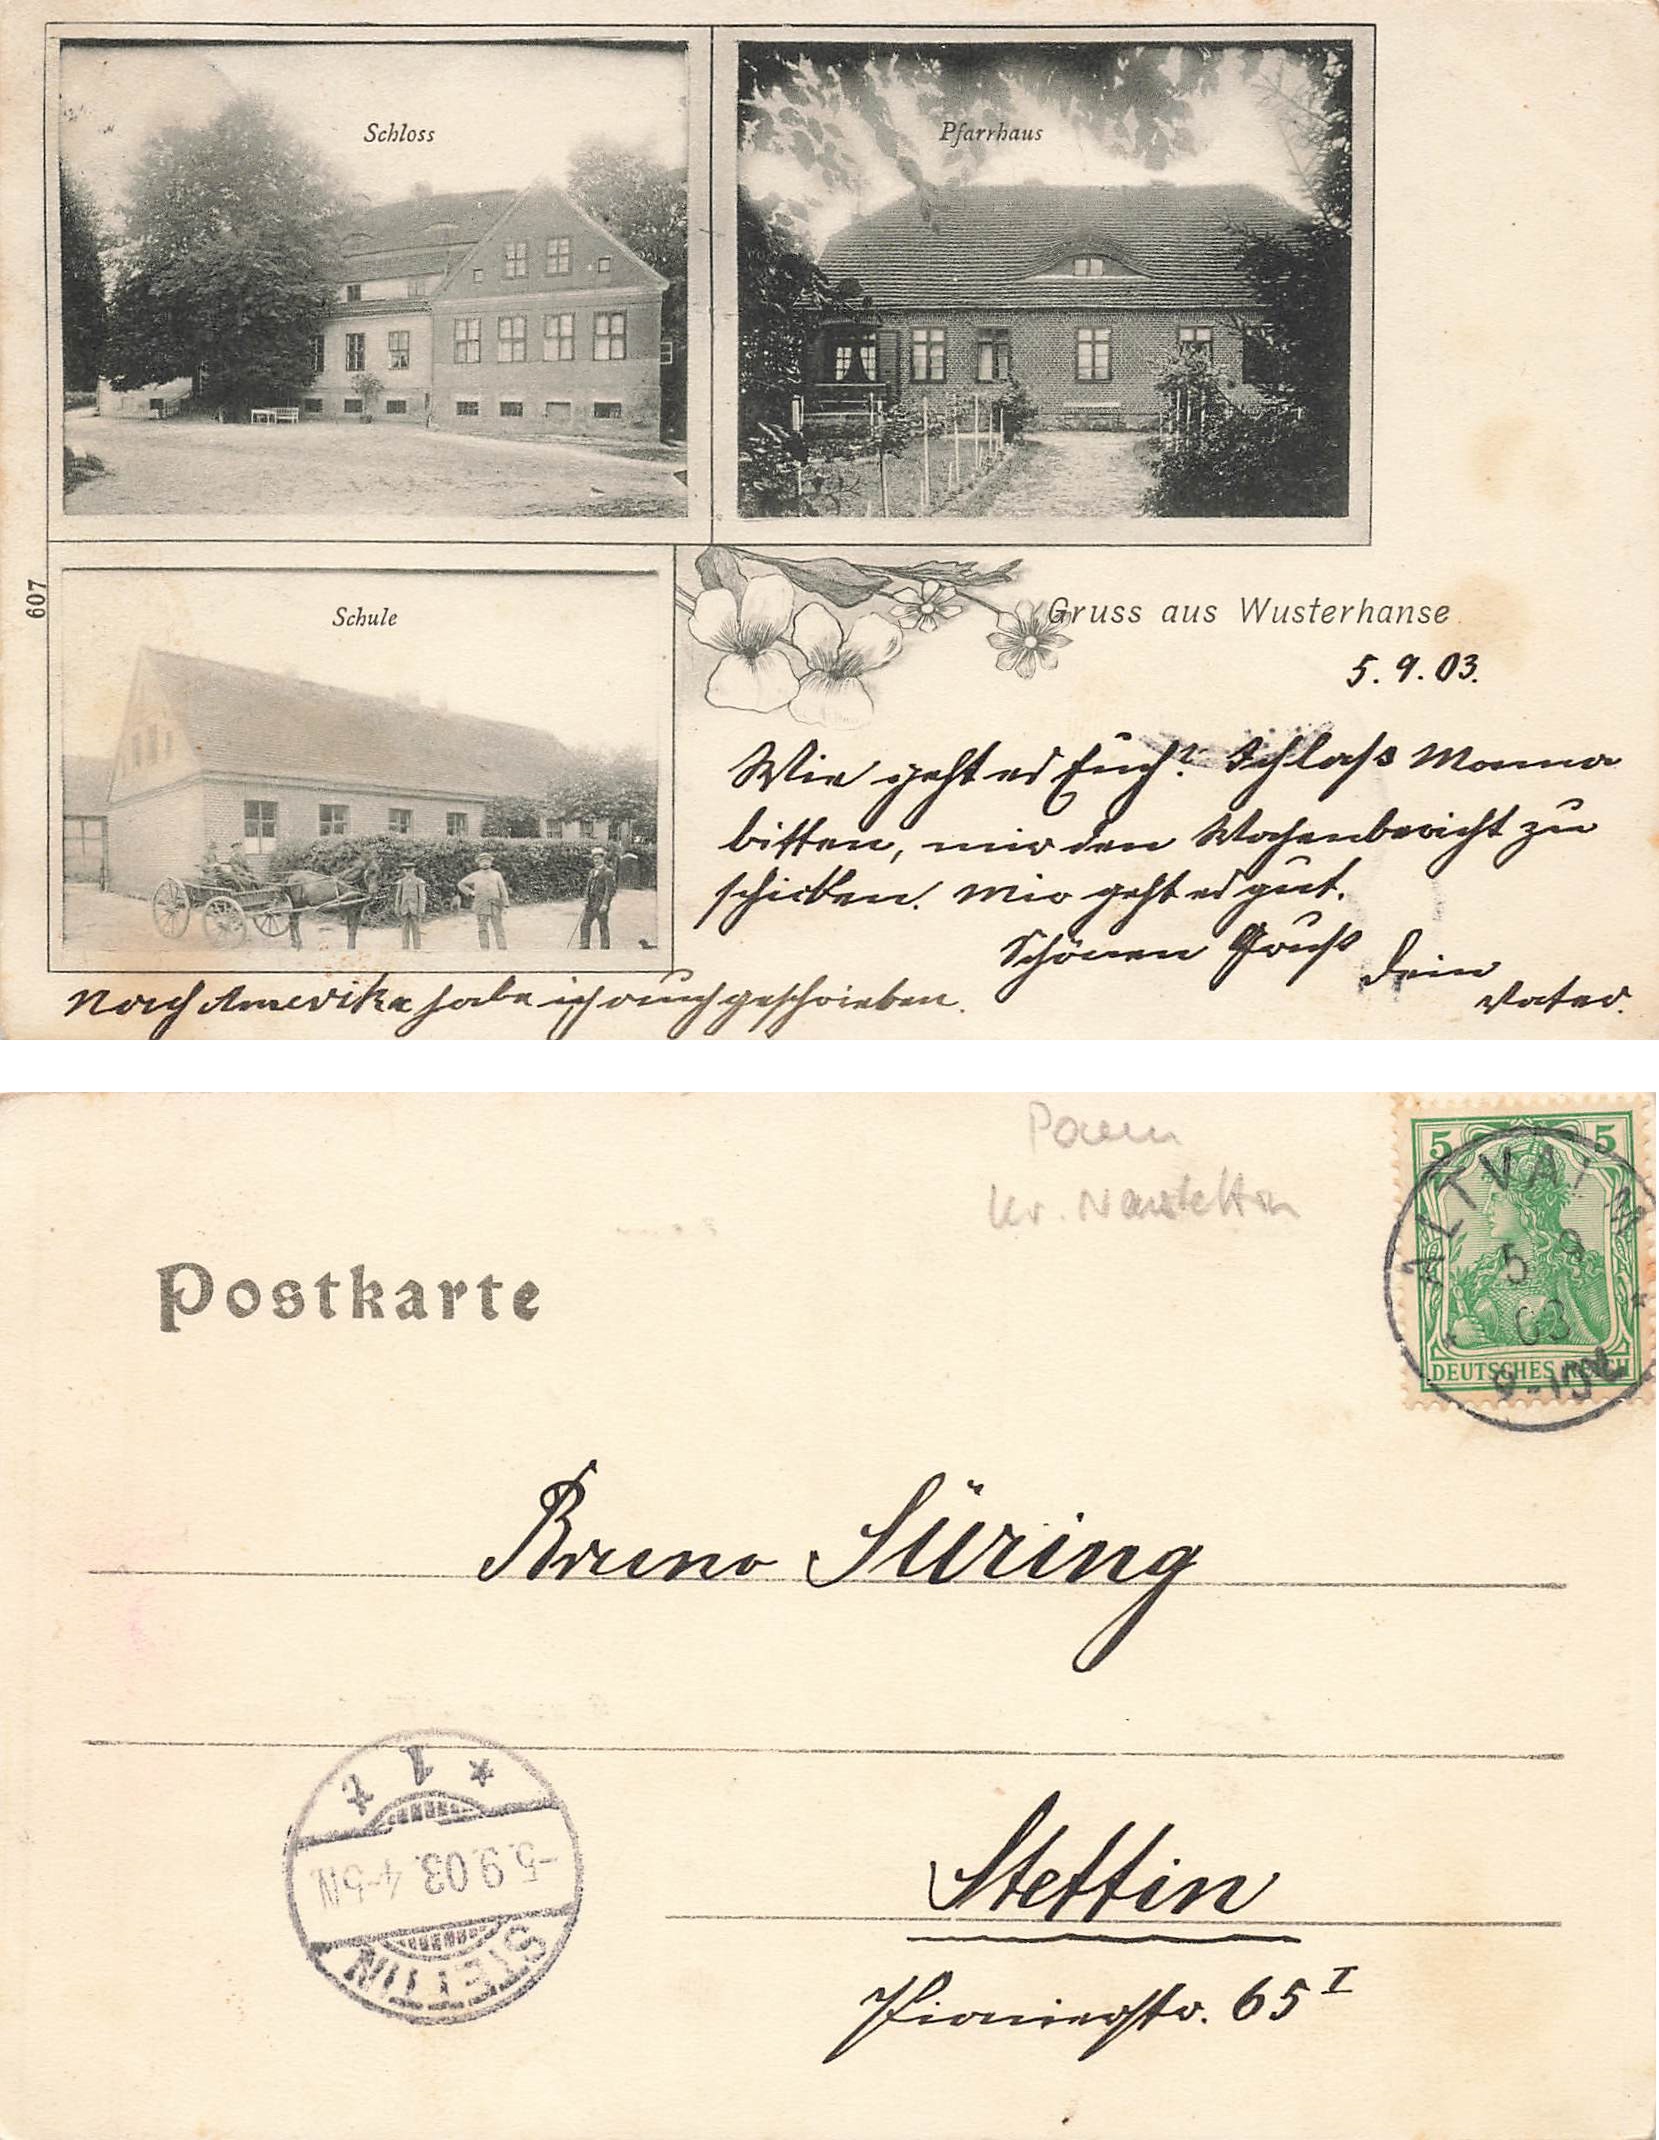 Schloss
Pfarrhaus
Schule
607
Gruss aus Wusterhanse
5. 9. 03.
Wie geht es Euch? Mama
bitten, mir den Wochenbericht zu
schicken. Mir geht es gut.
Schönen Gruß Dein
Vater.
Nach Amerika habe ich auch geschrieben.
Kr. Neustettin
Postkarte
5 5
DEUTSCHES REICH
ALTVALM
5 9
03
Bruno Süring
STETTIN
-5.9.03. 4-5N.
* 1 t
Stettin
Pionierstr. 65 I